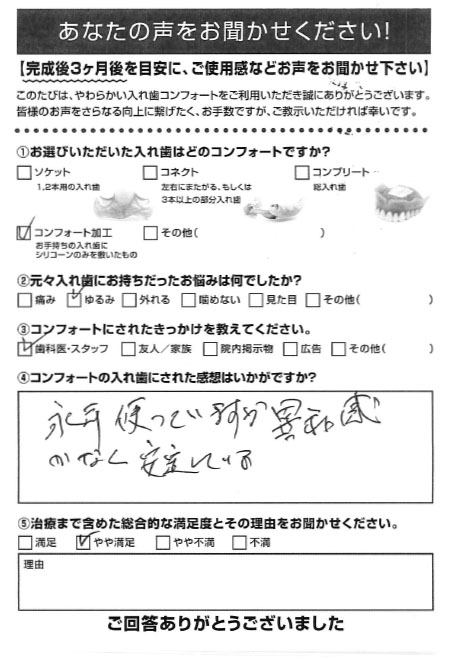 あなたの声をお聞かせください!
【完成後3ヶ月後を目安に、ご使用感などお声をお聞かせ下さい】
このたびは、やわらかい入れ歯コンフォートをご利用いただき誠にありがとうございます。
皆様のお声をさらなる向上に繋げたく、お手数ですが、ご教示いただければ幸いです。
①お選びいただいた入れ歯はどのコンフォートですか?
□ソケット □コネクト □コンプリート
1,2本用の入れ歯 左右にまたがる、もしくは 総入れ歯
3本以上の部分入れ歯
☑コンフォート加工 □その他( )
お手持ちの入れ歯に
シリコーンのみを敷いたもの
②元々入れ歯にお持ちだったお悩みは何でしたか?
□痛み ☑ゆるみ □外れる □噛めない □見た目 □その他( )
③コンフォートにされたきっかけを教えてください。
☑歯科医・スタッフ □友人／家族 □院内掲示物 □広告 □その他( )
④コンフォートの入れ歯にされた感想はいかがですか?
永年使っていますが異和感
がなく安定している
⑤治療まで含めた総合的な満足度とその理由をお聞かせください。
□満足 ☑やや満足 □やや不満 □不満
理由
ご回答ありがとうございました